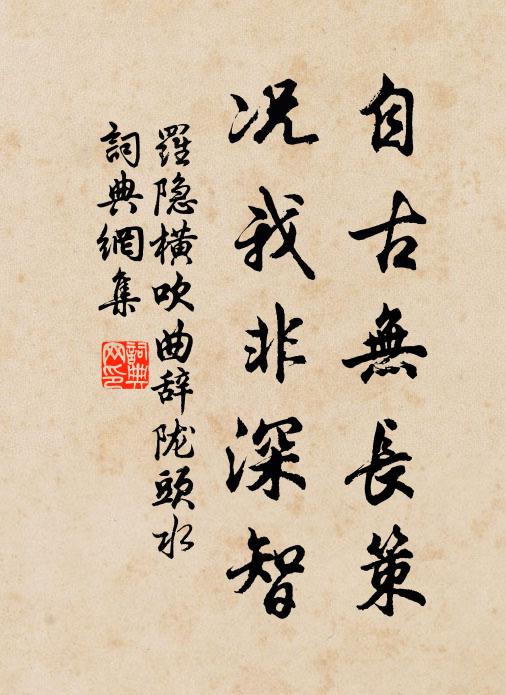 自古無長策
况我非深智
羅隐橫吹曲辞陇頭水
詞典網集
詞典網印